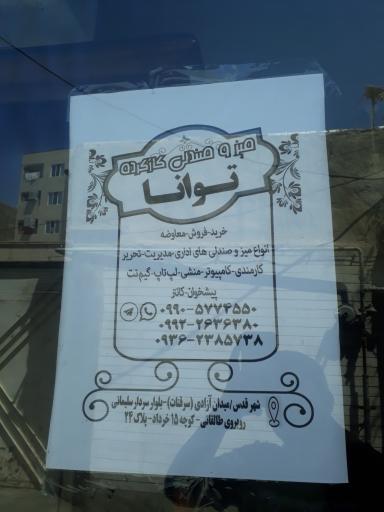 میز و صندلی کارکرده
توانا
خرید-فروش-معاوضه
انواع میز و صندلی های اداری-مدیریت-تحریر
کارمندی-کامپیوتر-منشی-لپ تاپ-گیم نت
پیشخوان-کانتر
۰۹۹۰-۵۷۷۴۵۵۰
۰۹۹۲-۲۶۳۶۳۸۰
۰۹۳۶-۲۳۸۵۷۳۸
شهر قدس/میدان آزادی (سرقنات)-بلوار سردار سلیمانی
روبروی طالقانی-کوچه ۱۵ خرداد-پلاک ۲۴